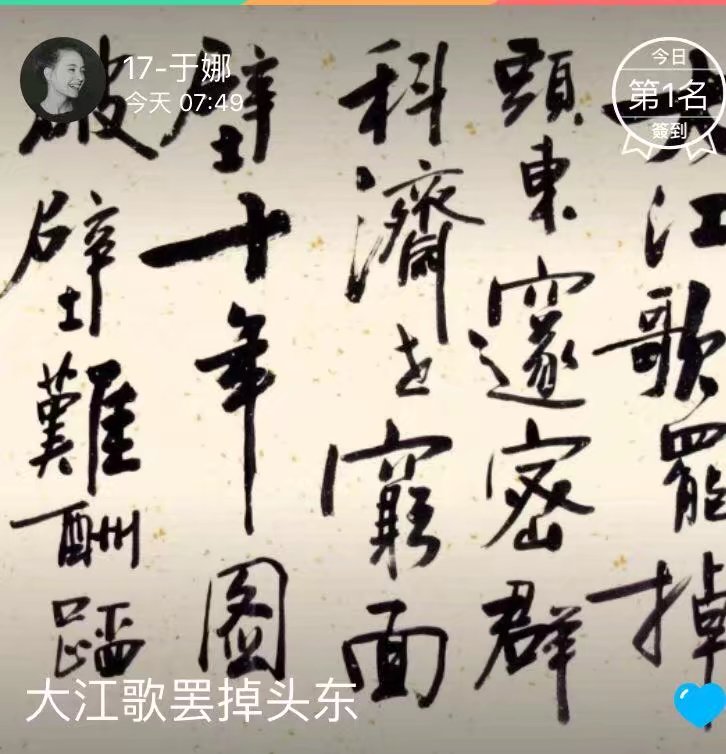 17-于娜
今天 07:49
今日
第1名
簽到
大江歌罷掉
頭東邃密群
科濟世窮面
壁十年圖
破壁難酬蹈
大江歌罢掉头东